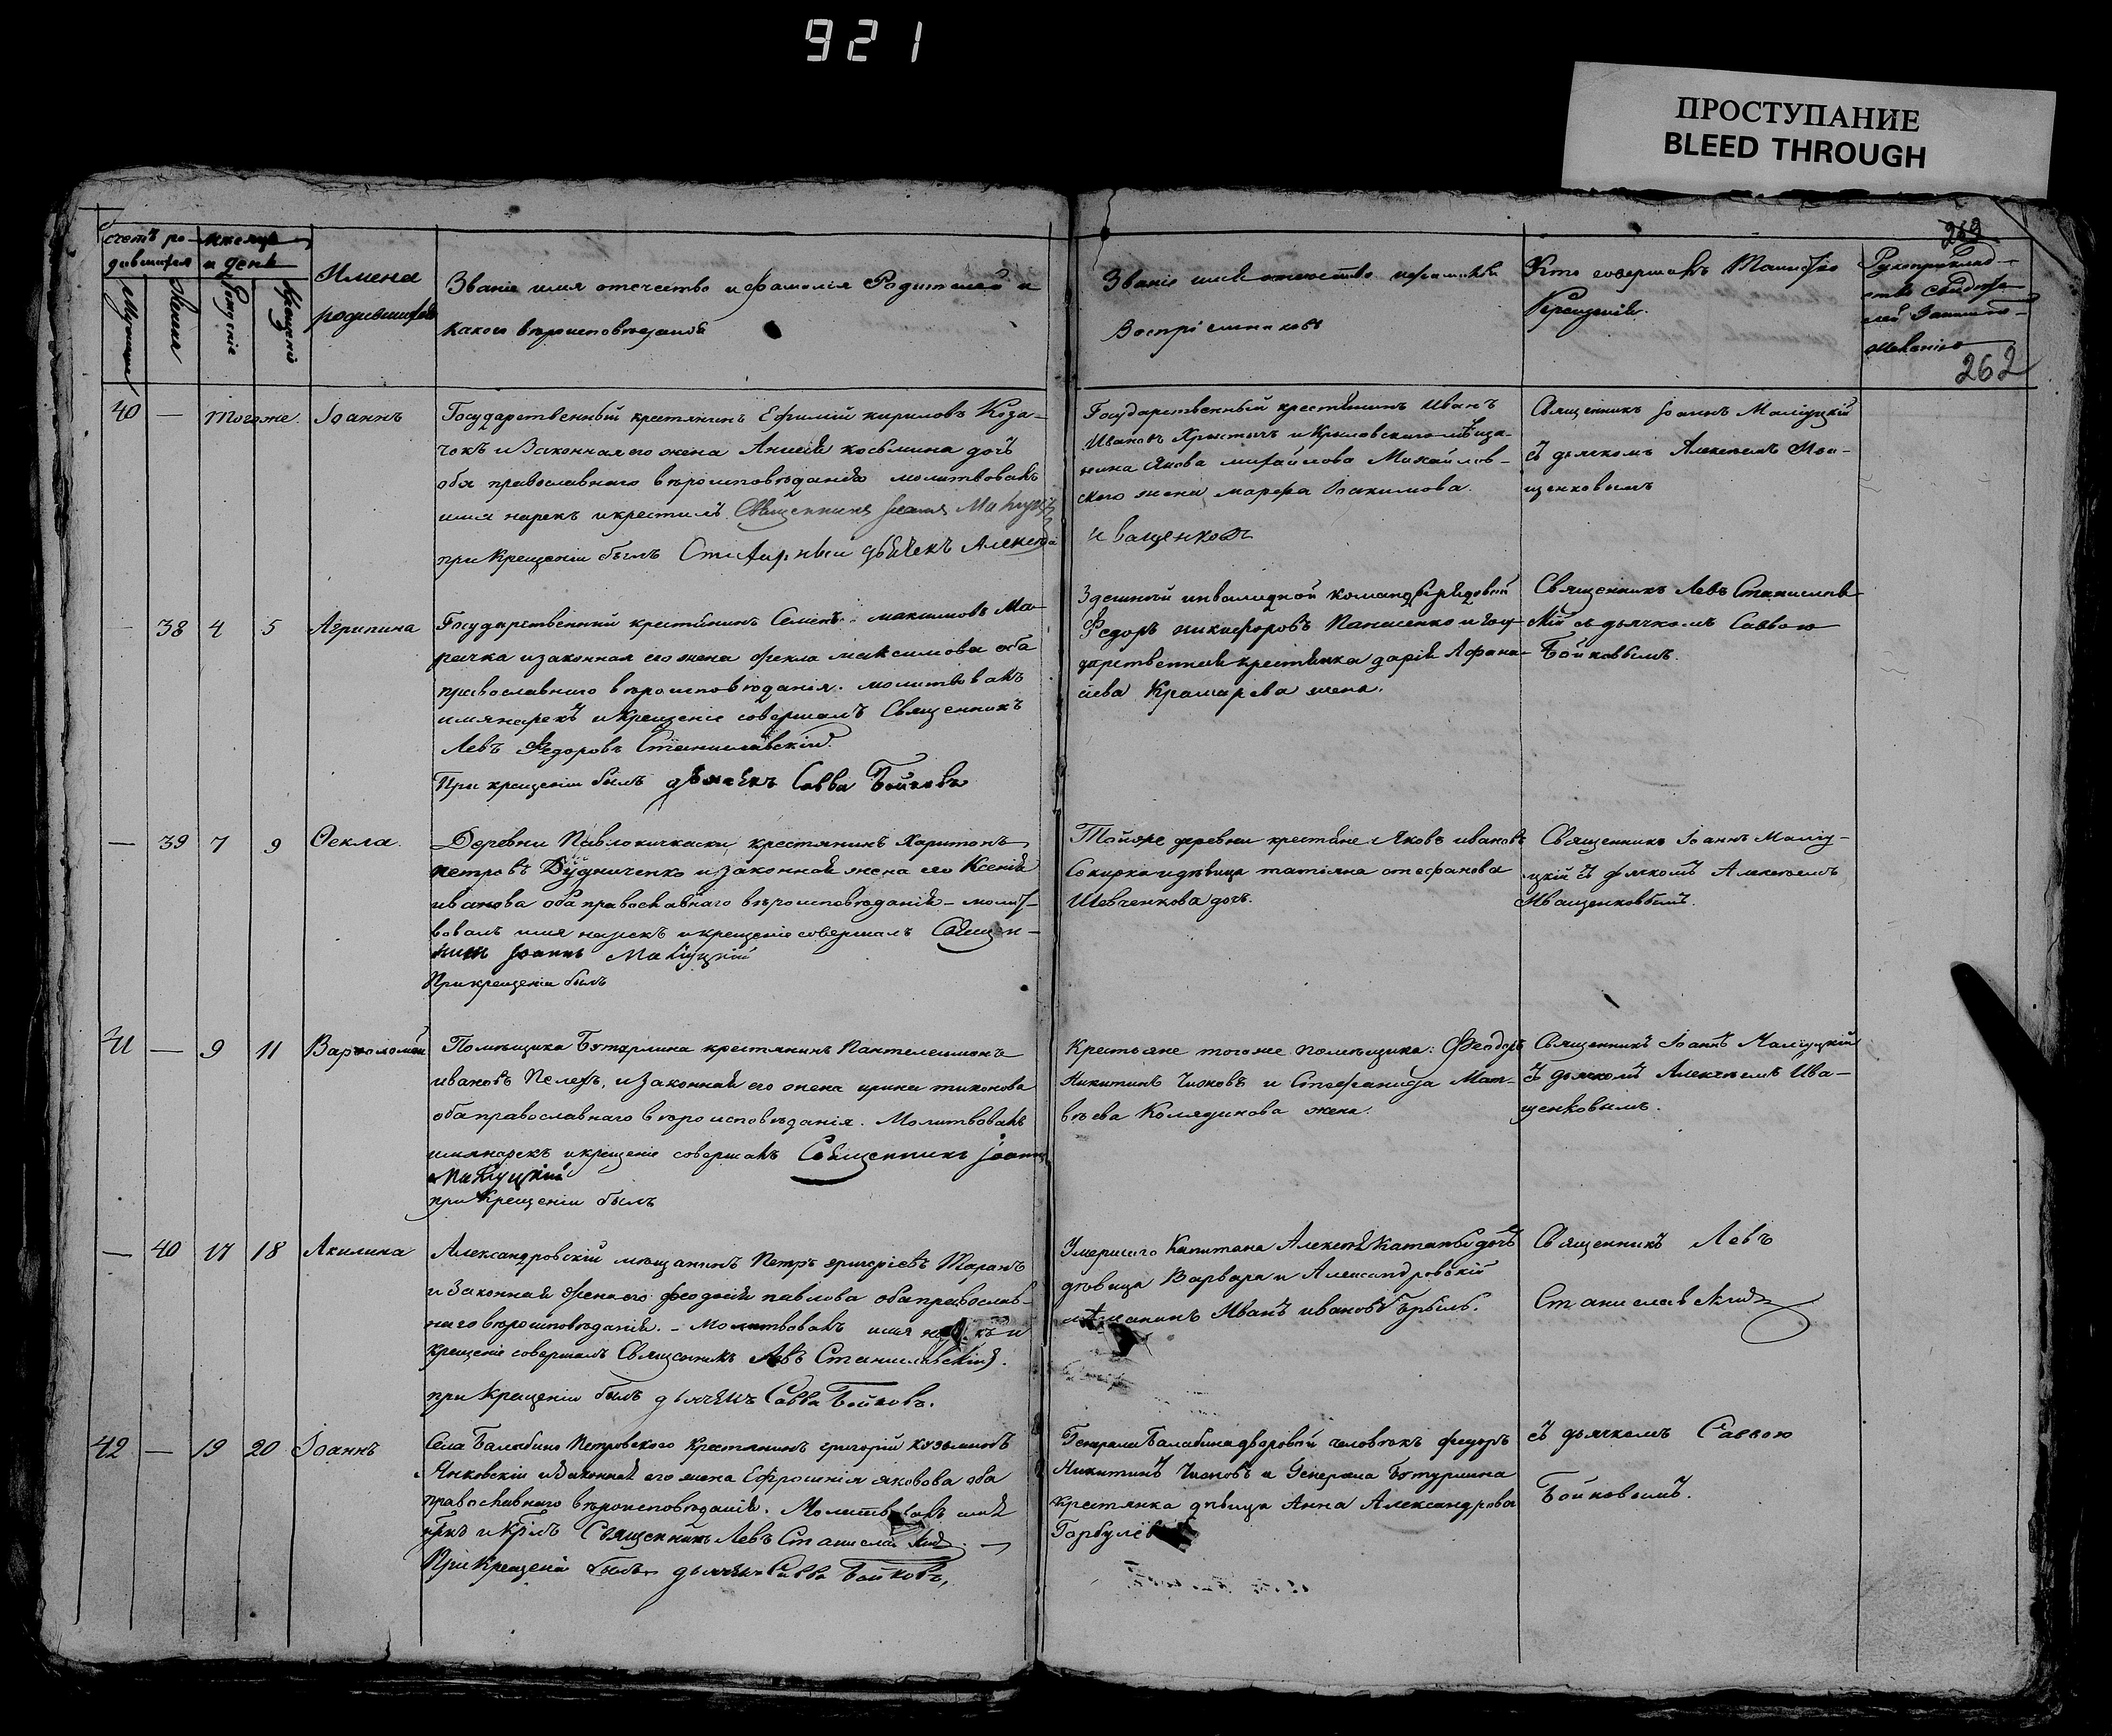 921
ПРОСТУПАНИЕ
BLEED THROUGH
262
Счетъ ро-
дившихся
мѣсяцъ
и день
Мужеска
Женска
Рожденіе
Крещеніе
Имена
родившихся
Званіе имя отечество и фамилія Родителей и
какого вѣроисповѣданія
Званіе имя отечество и фамилія
Воспріемниковъ
Кто совершалъ Таинство
Крещенія.
Рукоприклад-
ство свидѣте-
лей
262
40 — Тогоже Іоаннъ
Государственный крестянинъ Ефимій кириловъ Коза-
чокъ и Законная его жена Анисія косьмина дочь
оба православнаго вѣроисповѣданія молитвовалъ
имя нарекъ и крестилъ Священникъ Іоаннъ
при Крещеніи былъ дьячекъ Алексѣй
Государственный крестянинъ Иванъ
Ивановъ и Крыловскаго мѣща-
нина Якова михайлова Михайлов-
ского жена марфа Іоакимова
Иващенковъ
Священникъ Іоаннъ
съ дьячкомъ Алексѣемъ Ива-
щенковымъ
— 38 4 5 Агрипина
Государственный крестянинъ Семенъ максимовъ Ма-
рачка и законная его жена фекла максимова оба
православнаго вѣроисповѣданія. молитвовалъ
имя нарекъ и крещеніе совершалъ Священникъ
Левъ Федоровъ Станиславскій.
При крещеніи былъ дьячекъ Савва Бойковъ
Здешной инвалидной команды рядовой
Федоръ никифоровъ Панасенко и госу-
дарственная крестянка дарія Афана-
сіева Крамарева жена.
Священникъ Левъ Станиславс-
кій съ дьячкомъ Саввою
Бойковымъ.
— 39 7 9 Ѳекла.
Деревни Павлокичкаски крестянинъ Харитонъ
петровъ Дудниченко и законная жена его Ксенія
иванова оба православнаго вѣроисповѣданія — молит-
вовалъ имя нарекъ и крещеніе совершалъ Священ-
никъ Іоаннъ
При крещеніи былъ
Тойже деревни крестяне Яковъ ивановъ
Сокирка и дѣвица татіяна стефанова
Шевченкова дочь.
Священникъ Іоаннъ
съ дьячкомъ Алексѣемъ
Иващенковымъ.
41 — 9 11 Варѳоломей
Помѣщика Бутурлина крестянинъ Пантелеимонъ
ивановъ Пелехъ, и законная его жена ирина тихонова
оба православнаго вѣроисповѣданія. Молитвовалъ
имя нарекъ и крещеніе совершалъ Священникъ Іоаннъ
при Крещеніи былъ
Крестьяне тогоже помѣщика: Феодоръ
Никитинъ Чижовъ и Стефанида Мат-
вѣева Колядинова жена.
Священникъ Іоаннъ
съ дьячкомъ Алексѣемъ Ива-
щенковымъ.
— 40 17 18 Акилина
Александровскій мѣщанинъ Петръ григоріевъ Таранъ
и Законная жена его феодосія павлова оба православ-
наго вѣроисповѣданія. — Молитвовалъ имя и
крещеніе совершалъ Священникъ Левъ Станиславскій.
при Крещеніи былъ дьячекъ Савва Бойковъ.
Умершаго Капитана Алексѣя дочь
дѣвица Варвара и Александровскій
мѣщанинъ Иванъ ивановъ
Священникъ Левъ
Станиславскій
42 — 19 20 Іоаннъ
Села Балабино Петровского Крестянинъ григорій Кузьминовъ
Янковскій и Законная его жена Ефросинія яковова оба
православнаго вѣроисповѣданія. Молитвовалъ имя
и Священникъ Левъ Станиславскій.
При Крещеніи былъ дьячекъ Савва Бойковъ,
Генерала Балабина дворовой человѣкъ федоръ
Никитинъ Чижовъ и Генерала Бутурлина
крестянка дѣвица Анна Александрова
съ дьячкомъ Саввою
Бойковымъ.